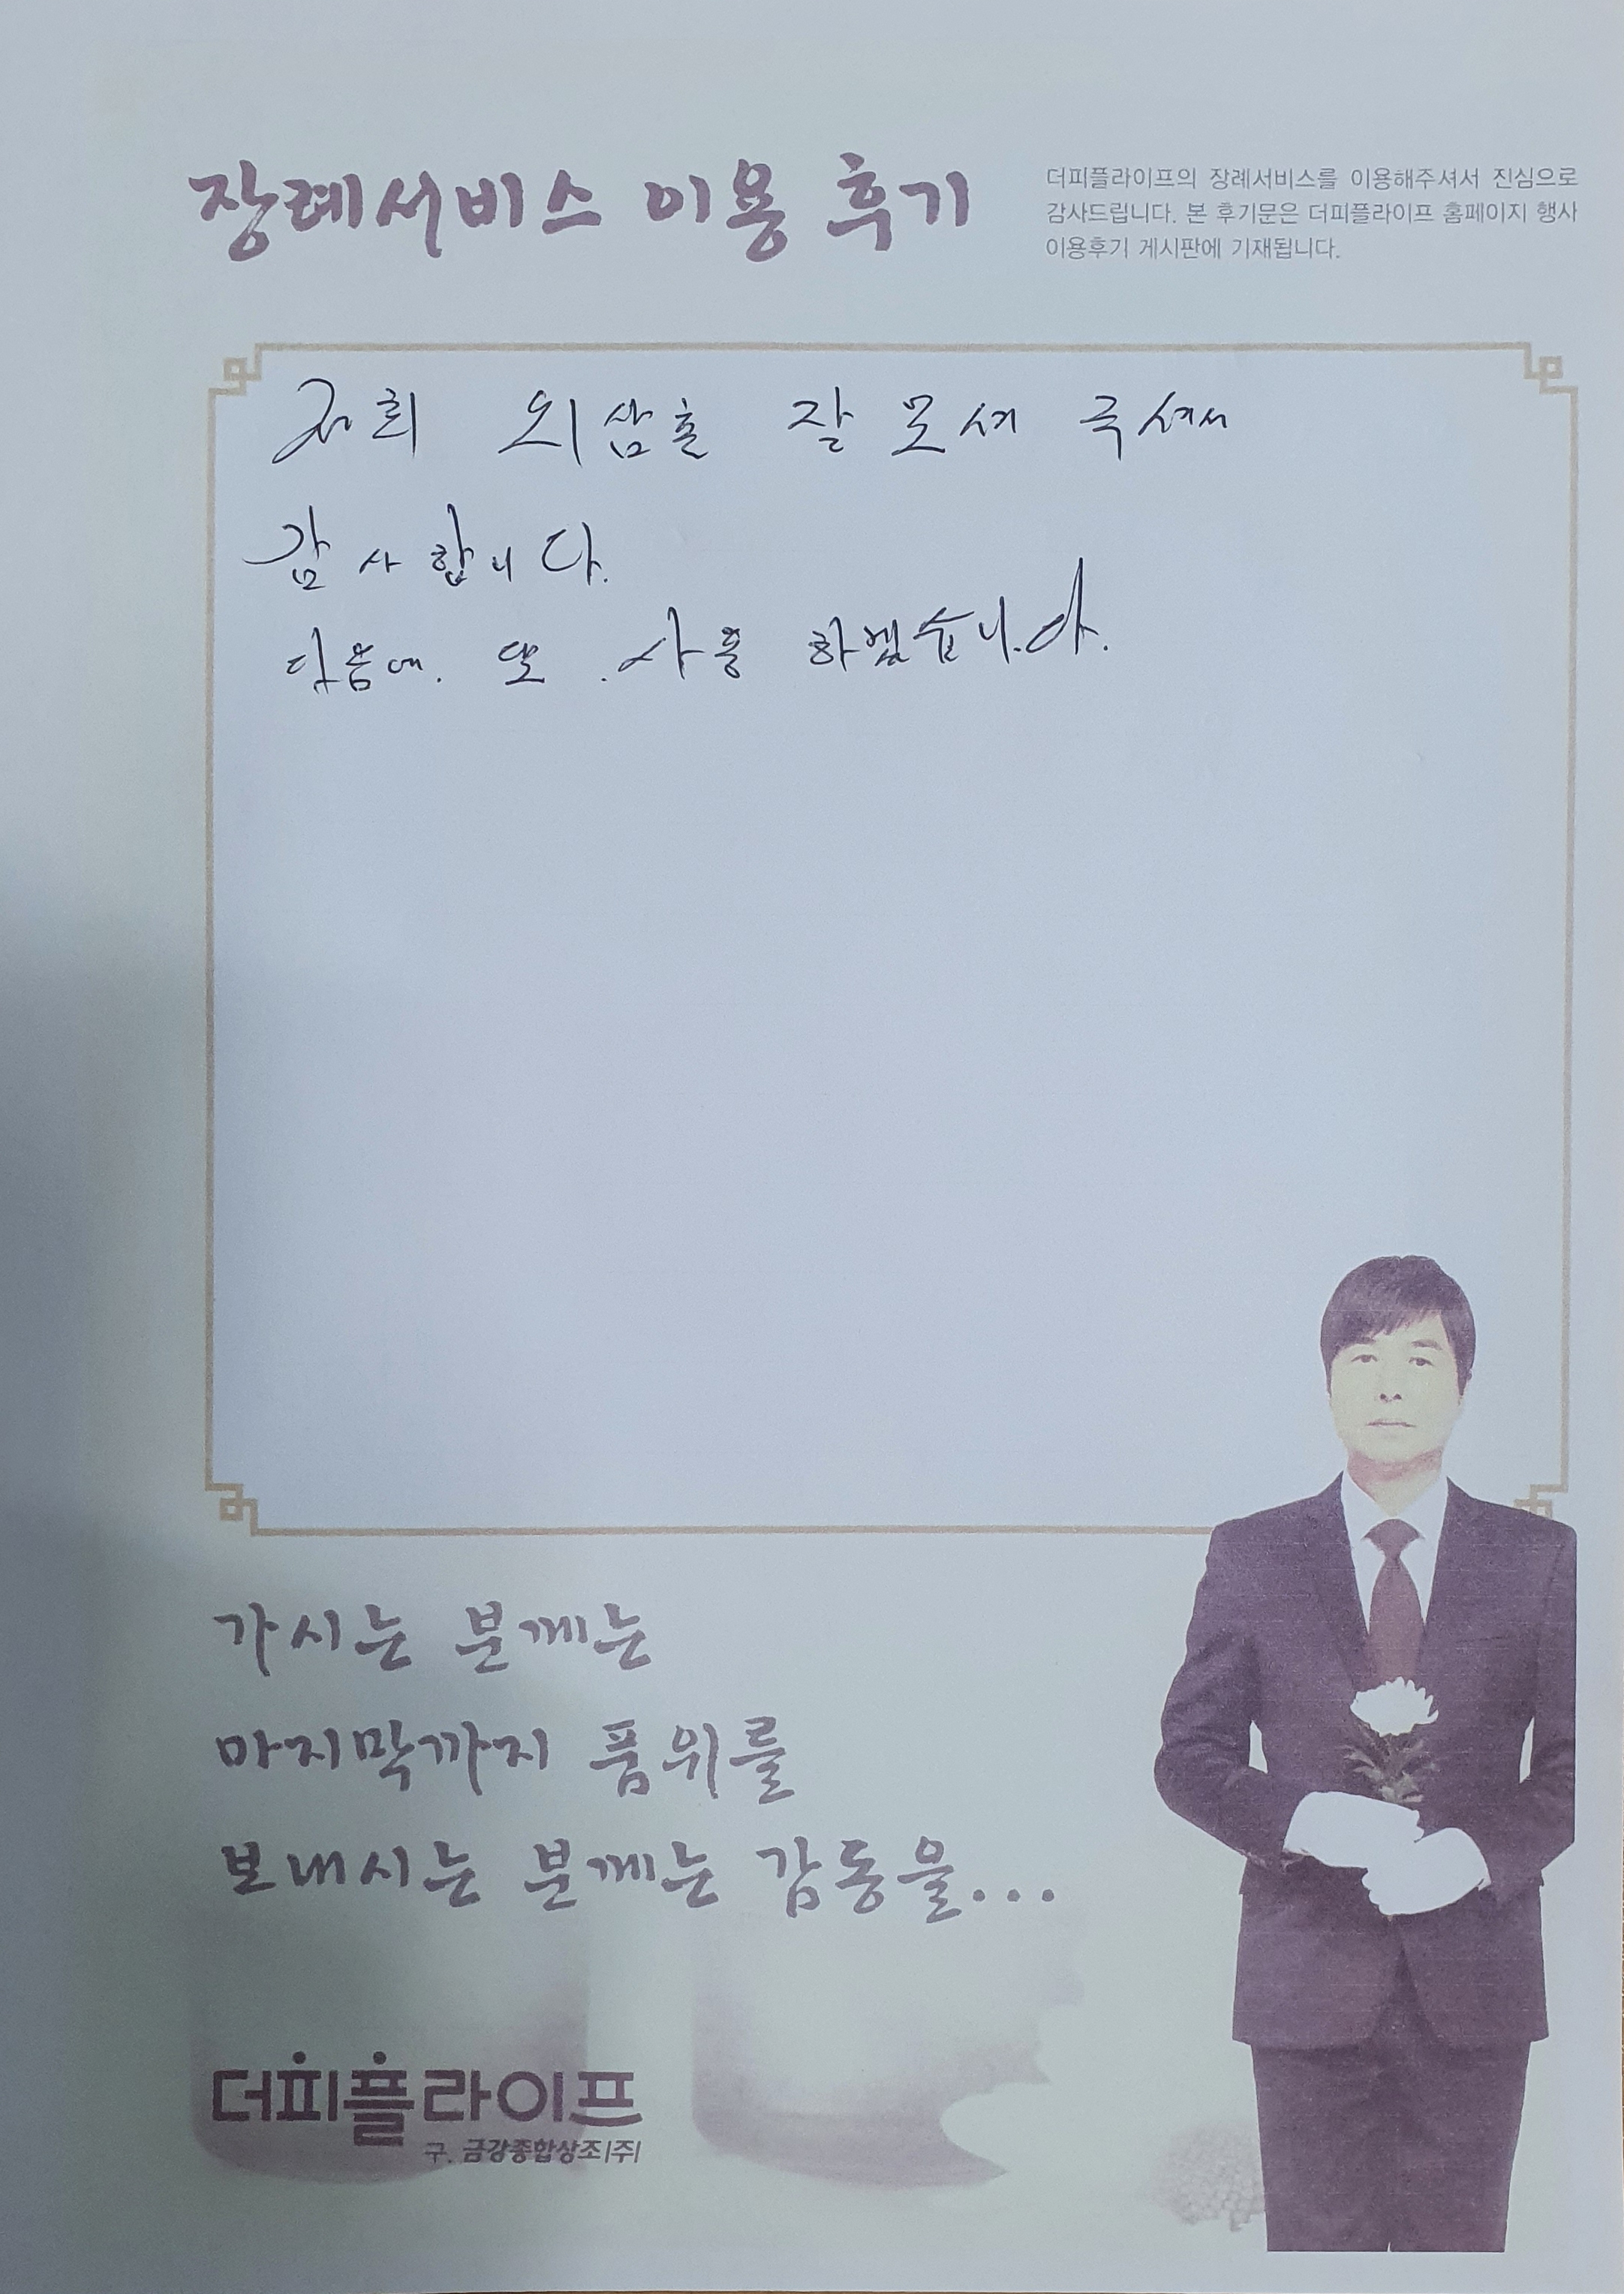 장례서비스 이용 후기
더피플라이프의 장례서비스를 이용해주셔서 진심으로
감사드립니다. 본 후기문은 더피플라이프 홈페이지 행사
이용후기 게시판에 기재됩니다.
저희 외삼촌 잘 모셔 주셔서
감사합니다.
다음에. 또 사용 하겠습니다.
가시는 분께는
마지막까지 품위를
보내시는 분께는 감동을...
더피플라이프
구. 금강종합상조(주)